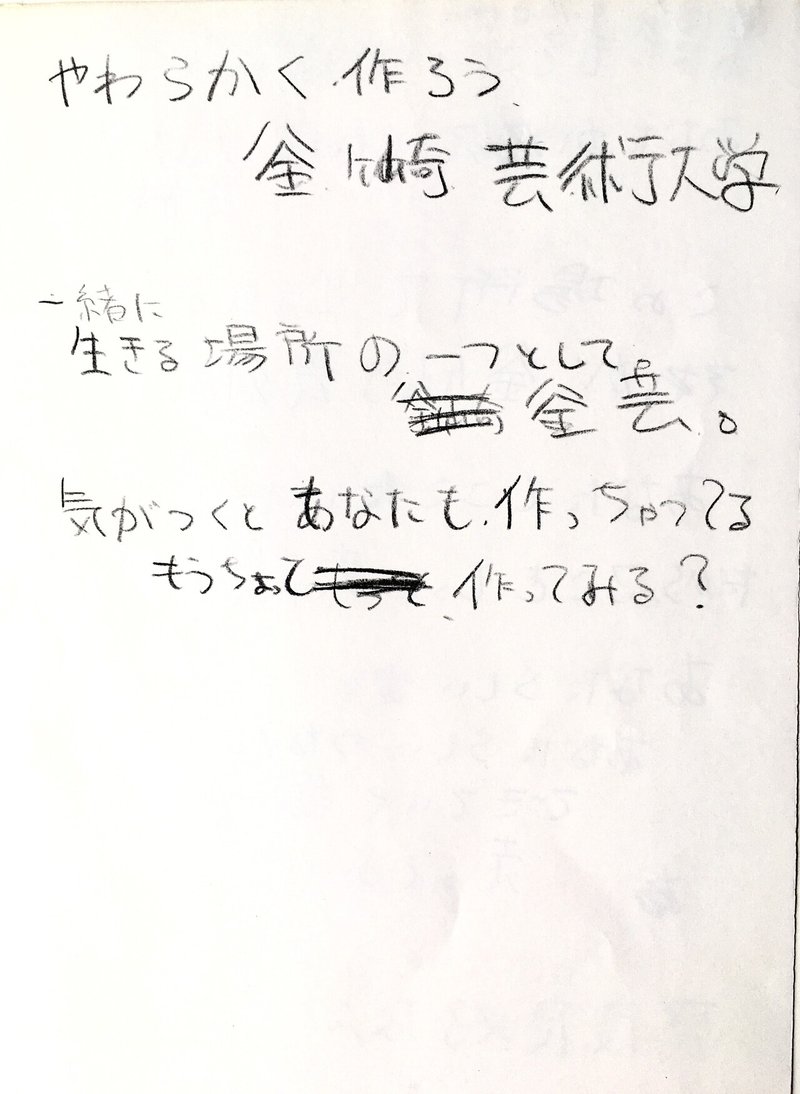 やわらかく作ろう、
釜ヶ崎芸術大学
一緒に
生きる場所の一つとして
釜芸。
気がつくとあなたも、作っちゃってる
もうちょっと、作ってみる？